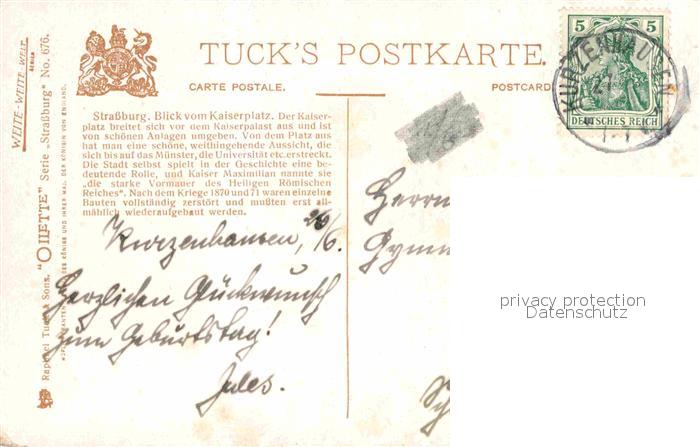 TUCK'S POSTKARTE.
CARTE POSTALE.
POSTCARD
5 5
DEUTSCHES REICH
KURZENHAUSEN
WEITE-WEITE-WELT
SERIEN
Raphael Tuck & Sons. "OILETTE" Serie „Straßburg" No. 676.
Straßburg. Blick vom Kaiserplatz. Der Kaiser-
platz breitet sich vor dem Kaiserpalast aus und ist
von schönen Anlagen umgeben. Von dem Platz aus
hat man eine schöne, weithingehende Aussicht, die
sich bis auf das Münster, die Universität etc. erstreckt.
Die Stadt selbst spielt in der Geschichte eine be-
deutende Rolle, und Kaiser Maximilian nannte sie
„die starke Vormauer des Heiligen Römischen
Reiches". Nach dem Kriege 1870 und 71 waren einzelne
Bauten vollständig zerstört und mußten erst all-
mählich wiederaufgebaut werden.
Kurzenhausen, 26/6.
Herzlichen Glückwunsch
zum Geburtstag!
Jules.
Herrn
Gymn
Sch
privacy protection
Datenschutz